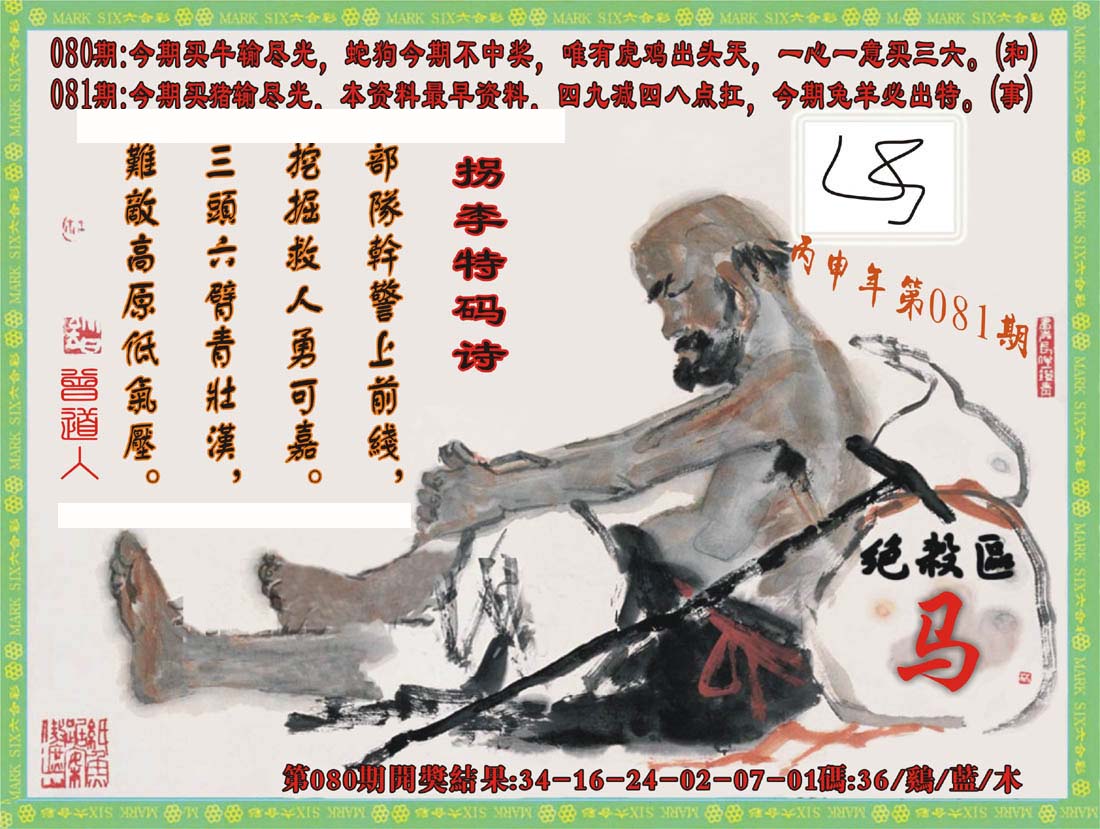 MARK SIX六合彩
080期:今期买牛输尽光，蛇狗今期不中奖，唯有虎鸡出头天，一心一意买三六。(和)
081期:今期买猪输尽光，本资料最早资料，四九减四八点扛，今期兔羊必出特。(事)
拐李特码诗
部隊幹警上前綫，
挖掘救人勇可嘉。
三頭六臂青壯漢，
難敵高原低氣壓。
曾道人
丙申年第081期
绝殺區
马
第080期開獎結果:34-16-24-02-07-01碼:36/鷄/藍/木